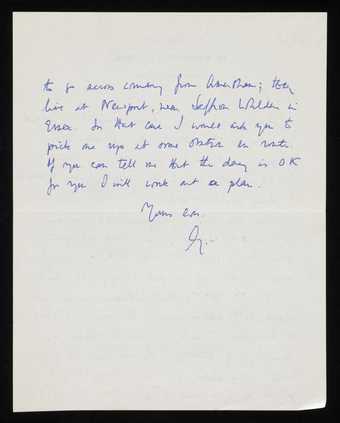 to go across country from Amersham; they
live at Newport, near Saffron Walden in
Essex. In that case I would ask you to
pick me up at some station en route.
If you can tell me that the day is OK
for you I will work out a plan.
Yours ever